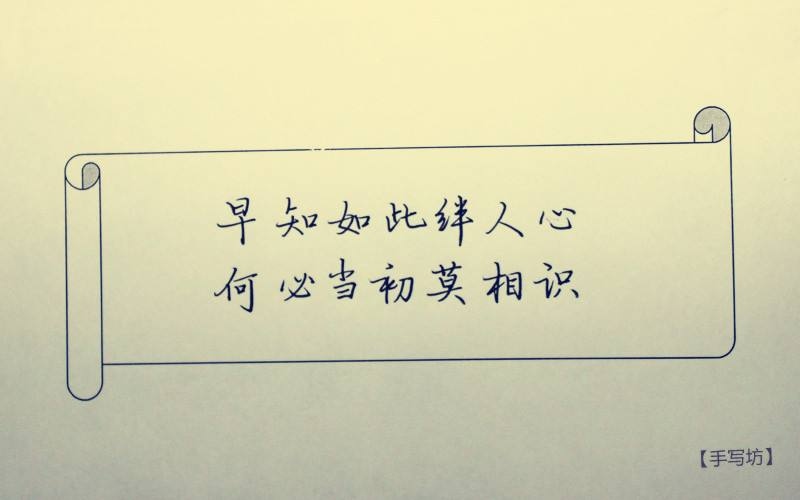 早知如此绊人心
何必当初莫相识
【手写坊】